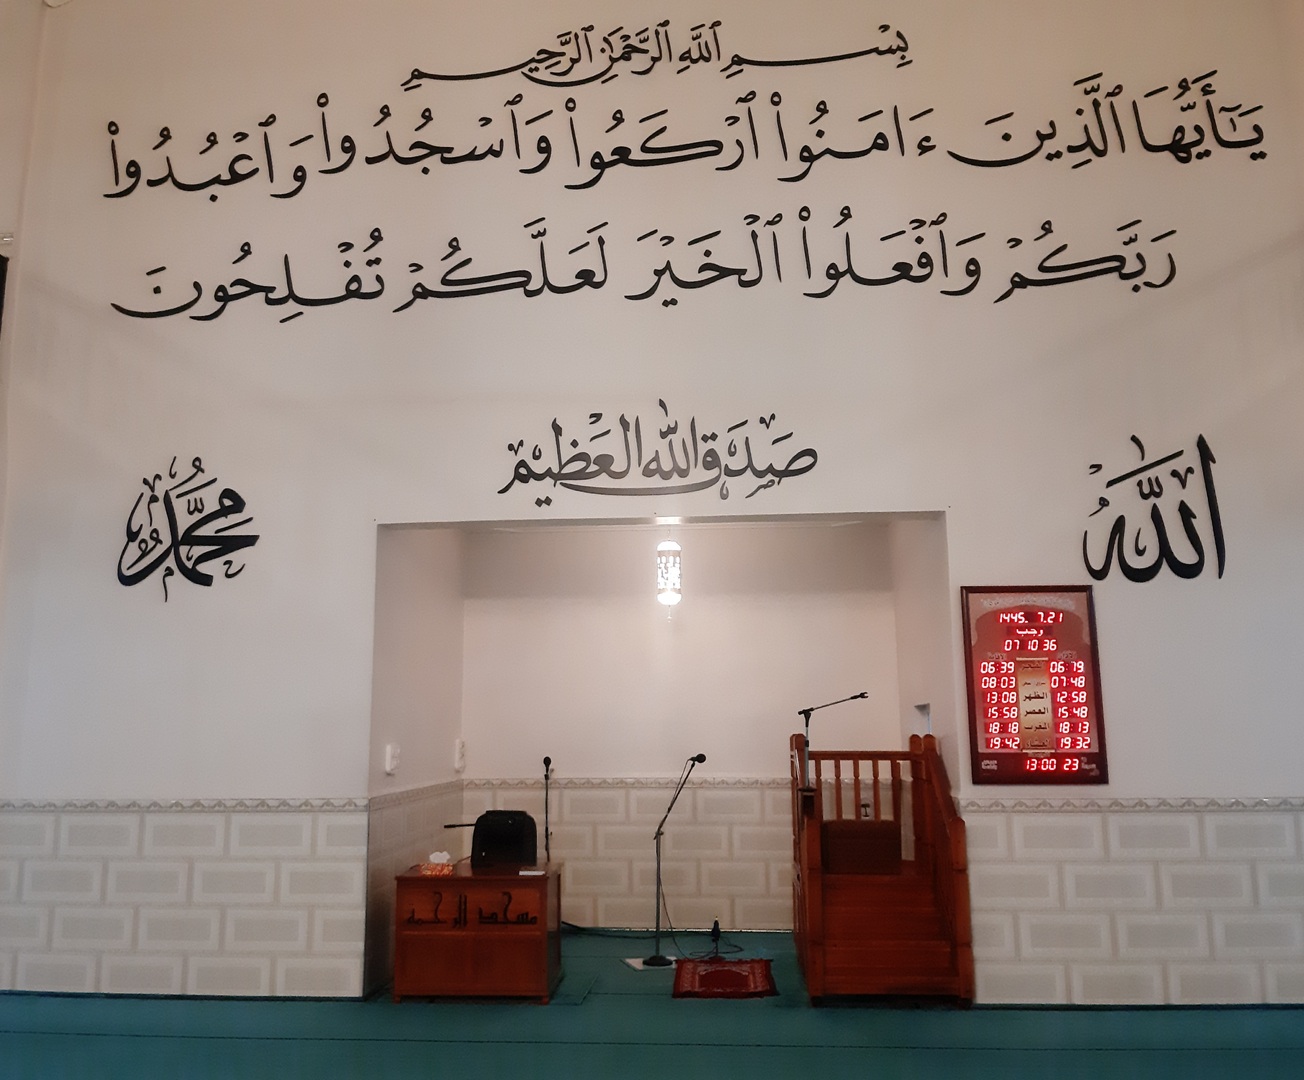 بِسْمِ ٱللَّهِ ٱلرَّحْمَٰنِ ٱلرَّحِيمِ
يَٰٓأَيُّهَا ٱلَّذِينَ ءَامَنُوا۟ ٱرْكَعُوا۟ وَٱسْجُدُوا۟ وَٱعْبُدُوا۟
رَبَّكُمْ وَٱفْعَلُوا۟ ٱلْخَيْرَ لَعَلَّكُمْ تُفْلِحُونَ
صَدَقَ اللّٰه العَظِيم
اللّٰهُ
مُحَمَّد
1445. 7.21
رجب
07 10 36
06:39 الفجر 06:19
08:03 07:48
13:08 الظهر 12:58
15:58 العصر 15:48
18:18 المغرب 18:13
19:42 العشاء 19:32
13:00 23
مسجد الرحمة